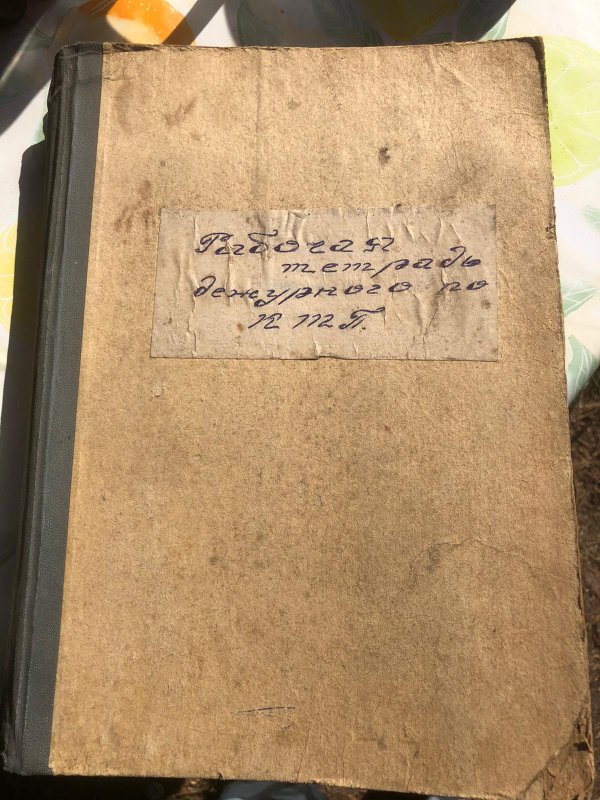 Рабочая
тетрадь
дежурного по
КТП.